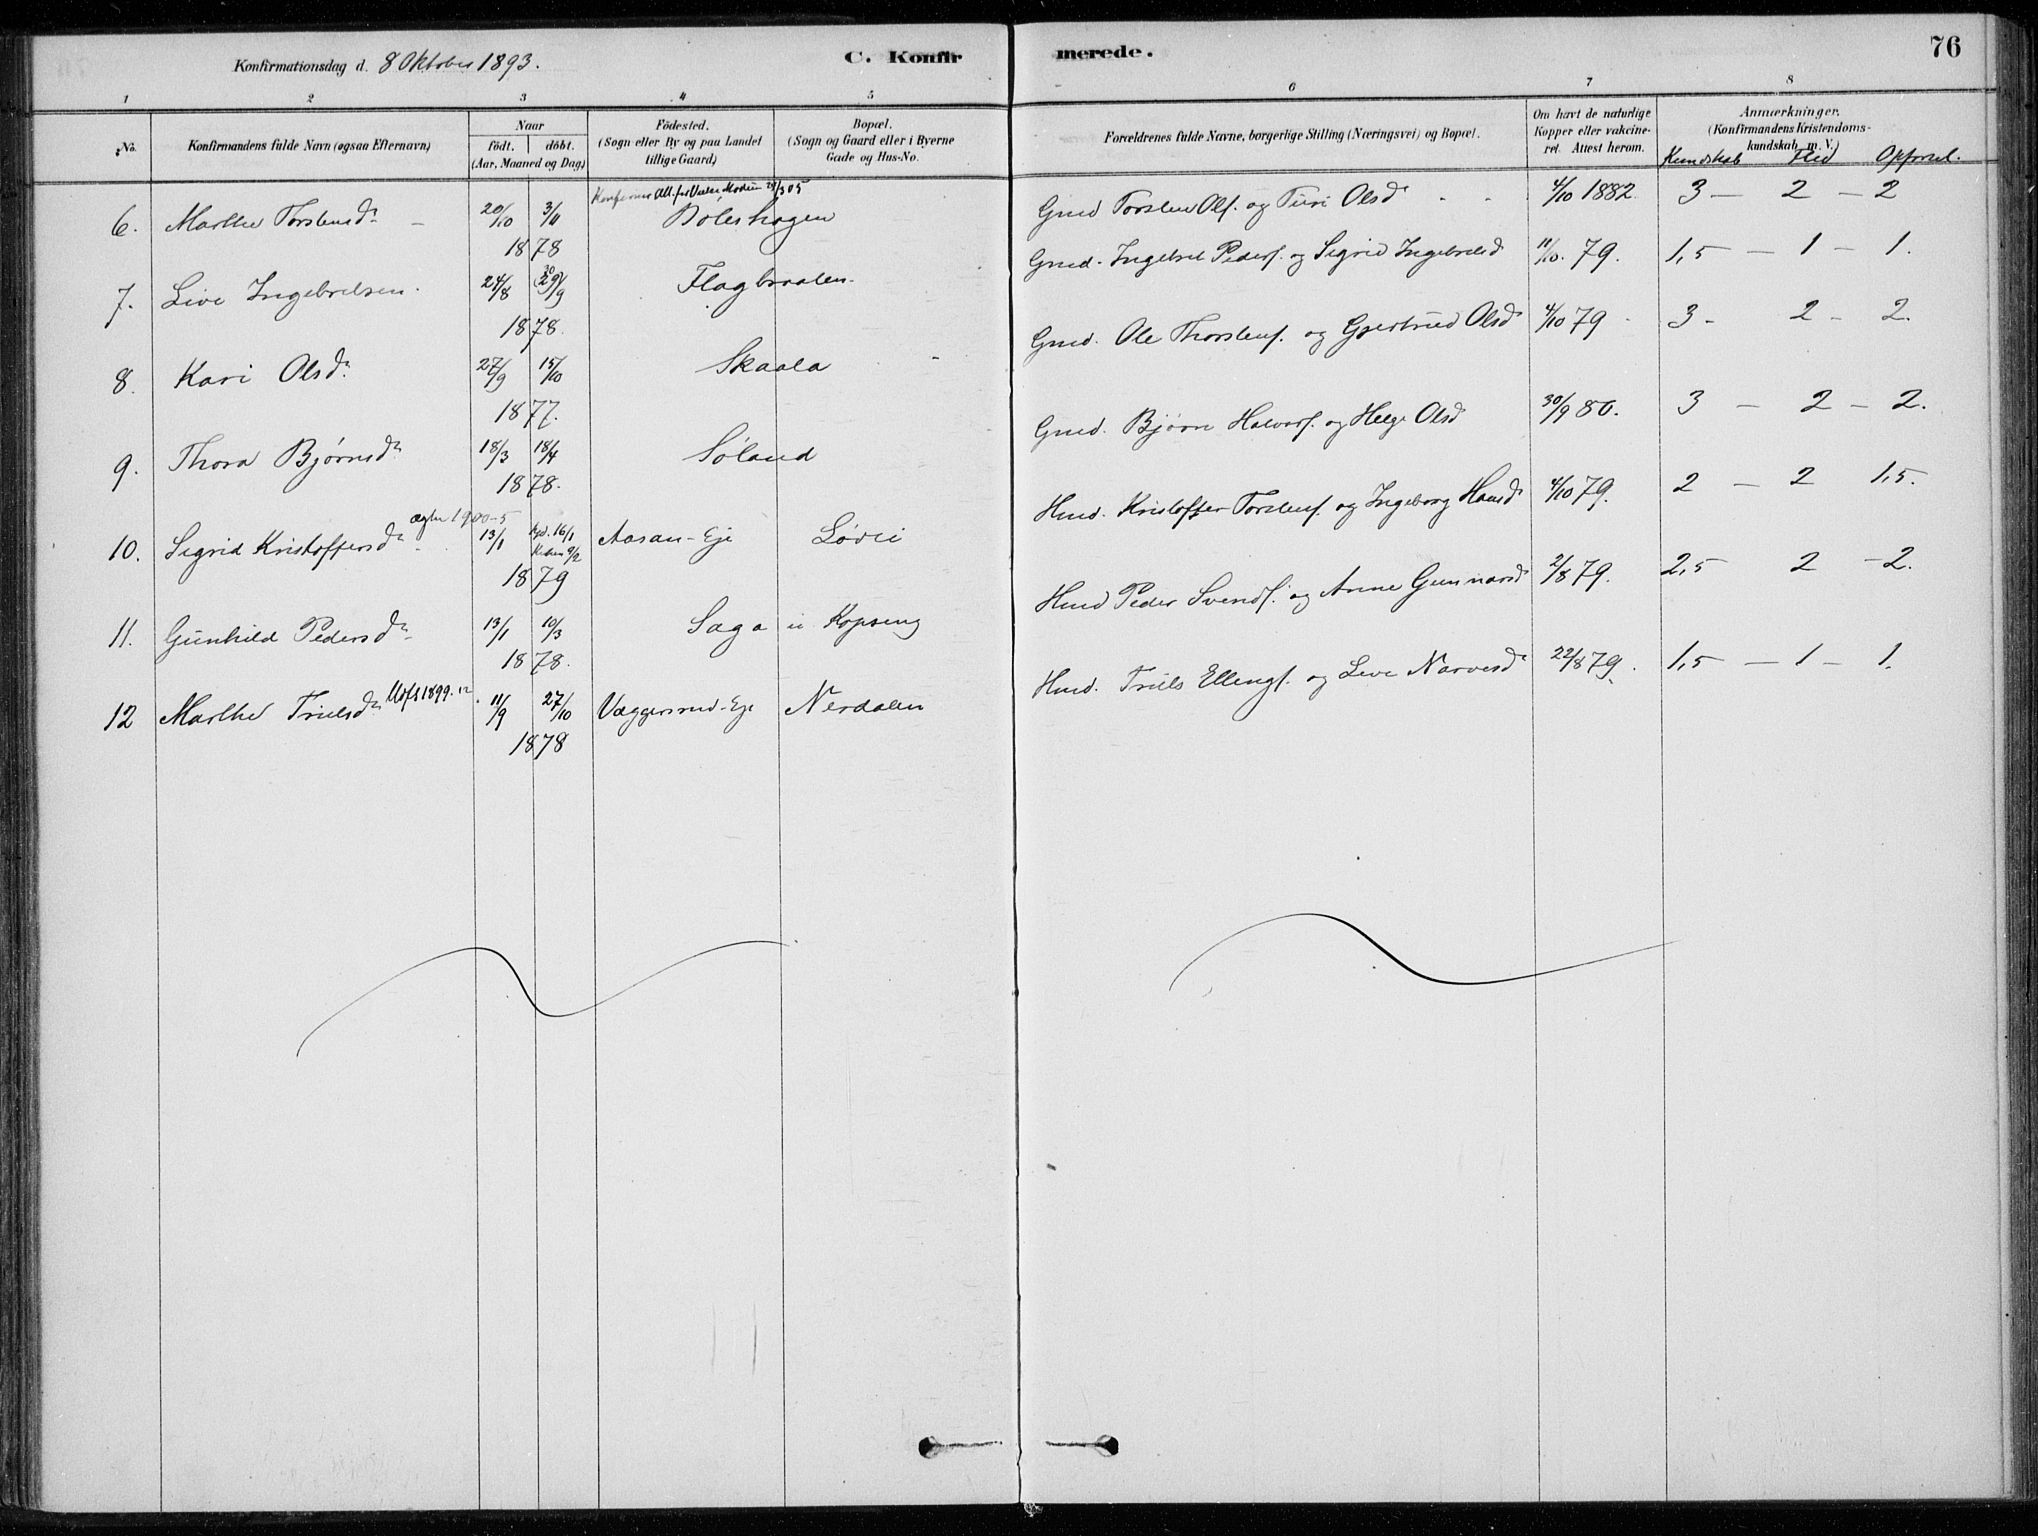 Konfirmationsdag d. 8 Oktober 1893.
C. Konfir
merede.
76
1 2 3 4 5 6 7 8
No.
Konfirmandens fulde Navn (ogsaa Efternavn)
Naar
födt. döbt.
(Aar, Maaned og Dag)
Födested.
(Sogn eller By og paa Landet
tillige Gaard)
Bopæl.
(Sogn og Gaard eller i Byerne
Gade og Hus-No.
Forældrenes fulde Navne, borgerlige Stilling (Næringsvei) og Bopæl.
Om havt de naturlige
Kopper eller vakcine-
ret. Attest herom.
Anmærkninger.
(Konfirmandens Kristendoms-
kundskab m. V.)
Kundskab Flid Opførsel.
6. Marthe Torstensd. 20/10 3/11 1878 Boleshagen Gmd Torsten Ols. og Turi Olsd 4/10 1882. 3 — 2 — 2
7. Live Ingebretsen. 24/8 29/9 1878. Flagbraaten Gmd. Ingebret Peders. og Sigrid Ingebretsd 11/10. 79. 1,5 — 1 — 1.
8. Kari Olsd. 27/9 15/10 1877. Skaala Gmd. Ole Thorstens. og Gjertrud Olsd 4/10 79 3 - 2 - 2.
9. Thora Bjørnsd. 18/3 18/4 1878. Søland Gmd. Bjørn Halvors. og Helge Olsd 30/9 80. 3 — 2 — 2.
10. Sigrid Kristoffersd. 1900-5 13/1 16/1 9/2 1879 Aasan-Eje Løvli Hmd. Kristoffer Torstens. og Ingeborg Hansd 4/10 79. 2 — 2 1,5.
11. Gunhild Pedersd. 13/1 10/3 1878. Saga u. Kopseng Hmd Peder Svends. og Anne Gunnarsd 2/8 79. 2,5 2 - 2.
12 Marthe Trulsd. 1899. 12 11/9 27/10 1878 Væggersrud-Eje Nerdalen Hmd. Truls Ellengs. og Live Narvesd 22/8 79. 1,5 — 1 — 1.